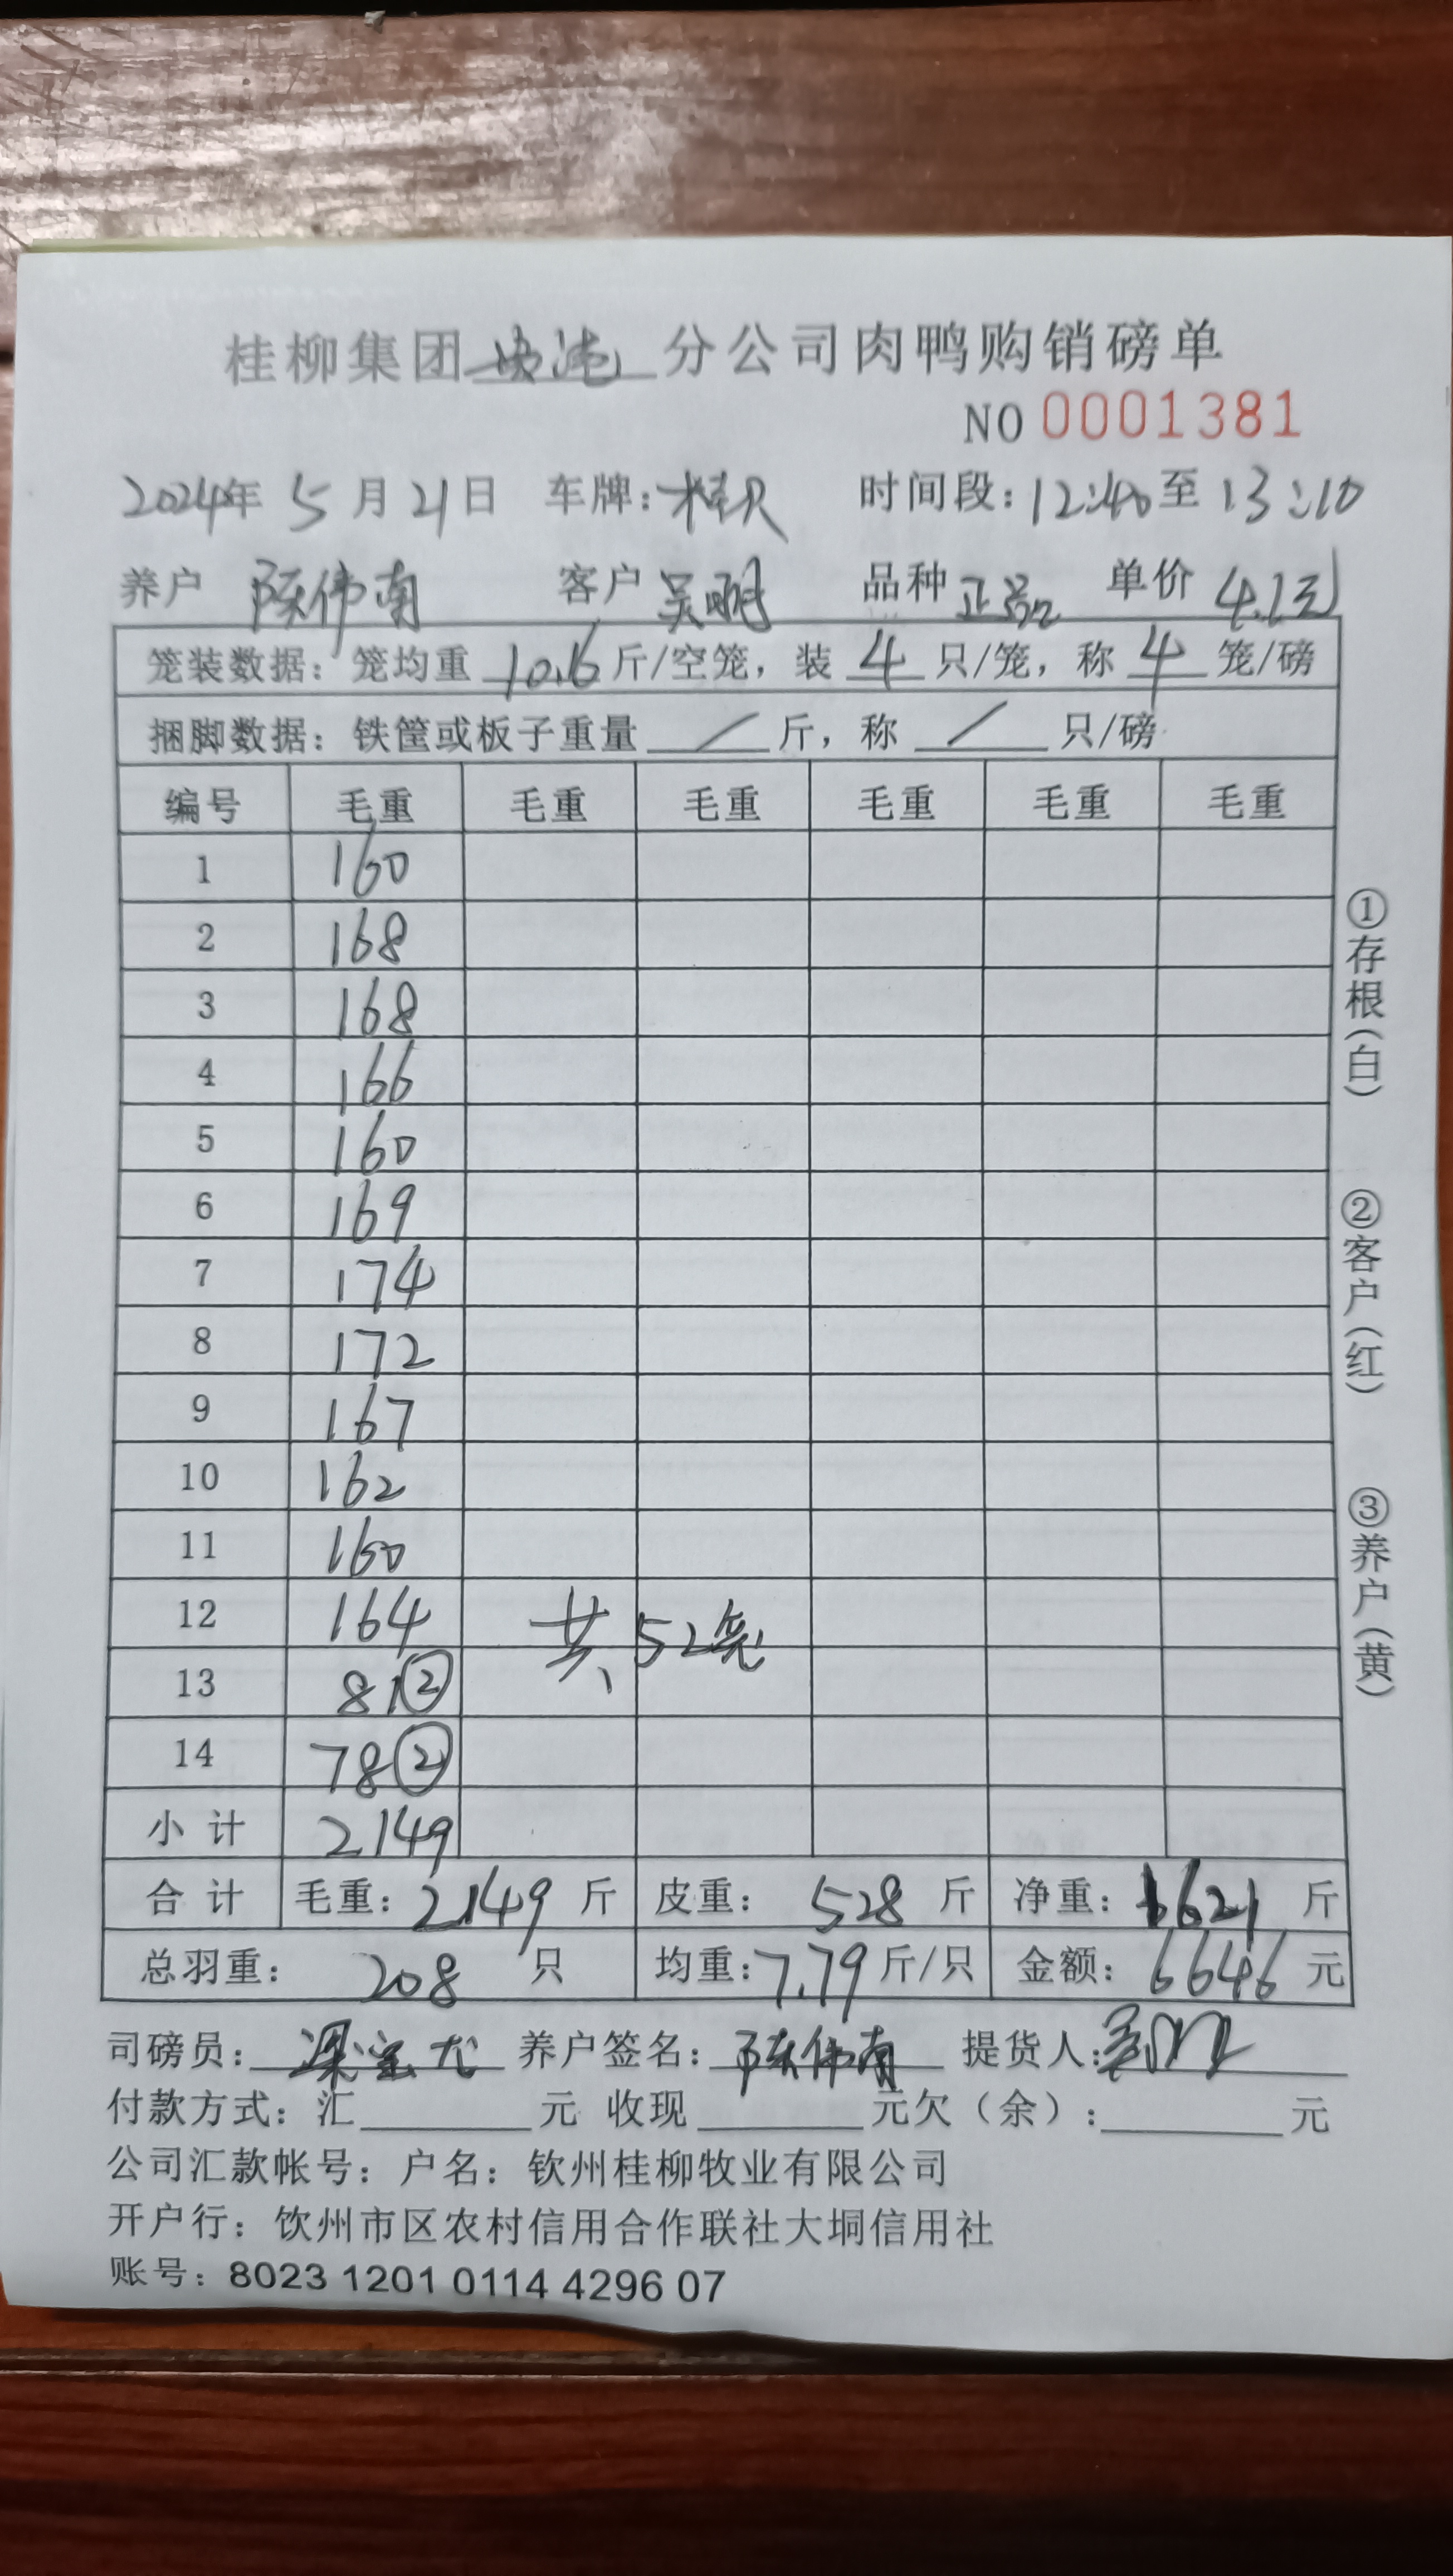 桂柳集团 分公司肉鸭购销磅单
NO 0001381
2024年 5 月 21日 车牌: 时间段:12:40至 13:10
养户 陈伟南 客户 吴明 品种 正品 单价 4.1元
笼装数据:笼均重 10.6 斤/空笼,装 4 只/笼,称 4 笼/磅
捆脚数据:铁筐或板子重量 / 斤,称 / 只/磅
编号 毛重 毛重 毛重 毛重 毛重 毛重
1 160
2 168
3 168
4 166
5 160
6 169
7 174
8 172
9 167
10 162
11 160
12 164 共52笼
13 81②
14 78②
小计 2149
合计 毛重:2149 斤 皮重: 528 斤 净重:1621 斤
总羽重: 208 只 均重:7.79 斤/只 金额:6646 元
司磅员: 养户签名:陈伟南 提货人:
付款方式:汇 元 收现 元欠(余): 元
公司汇款帐号:户名:钦州桂柳牧业有限公司
开户行:饮州市区农村信用合作联社大垌信用社
账号:8023 1201 0114 4296 07
①存根(白)
②客户(红)
③养户(黄)